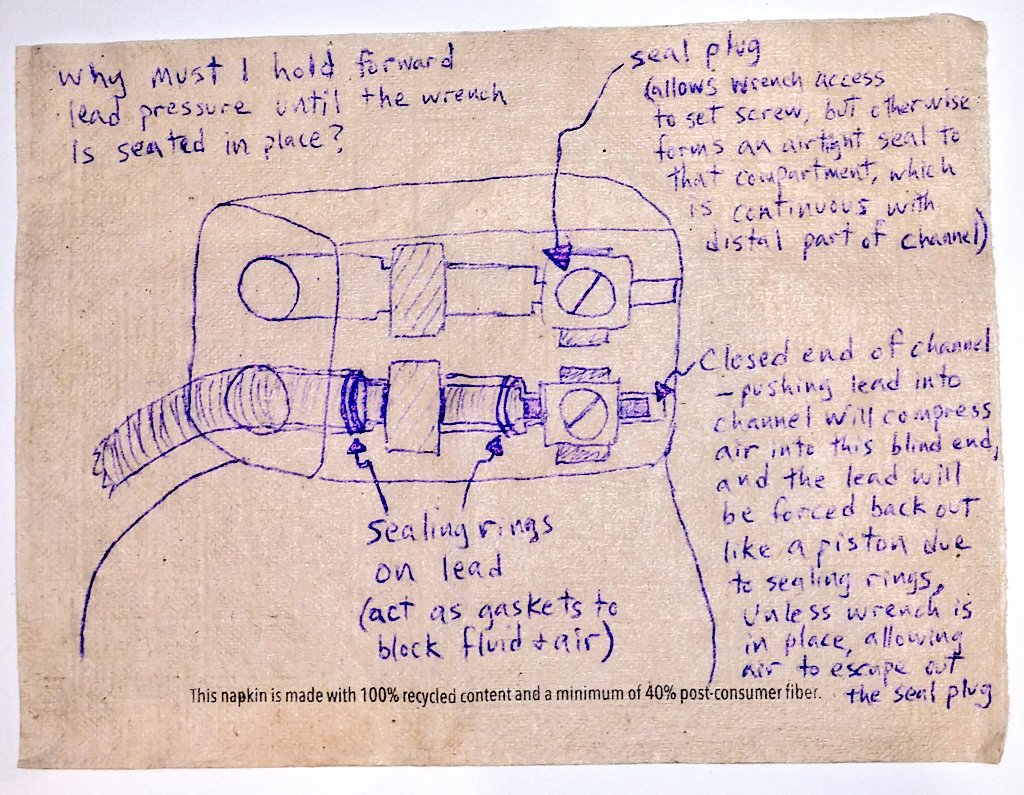 Why must I hold forward
lead pressure until the wrench
is seated in place?
seal plug
(allows wrench access
to set screw, but otherwise
forms an airtight seal to
that compartment, which
is continuous with
distal part of channel)
Closed end of channel
- pushing lead into
channel will compress
air into this blind end,
and the lead will
be forced back out
like a piston due
to sealing rings,
unless wrench is
in place, allowing
air to escape out
the seal plug
Sealing rings
on lead
(act as gaskets to
block fluid + air)
This napkin is made with 100% recycled content and a minimum of 40% post-consumer fiber.